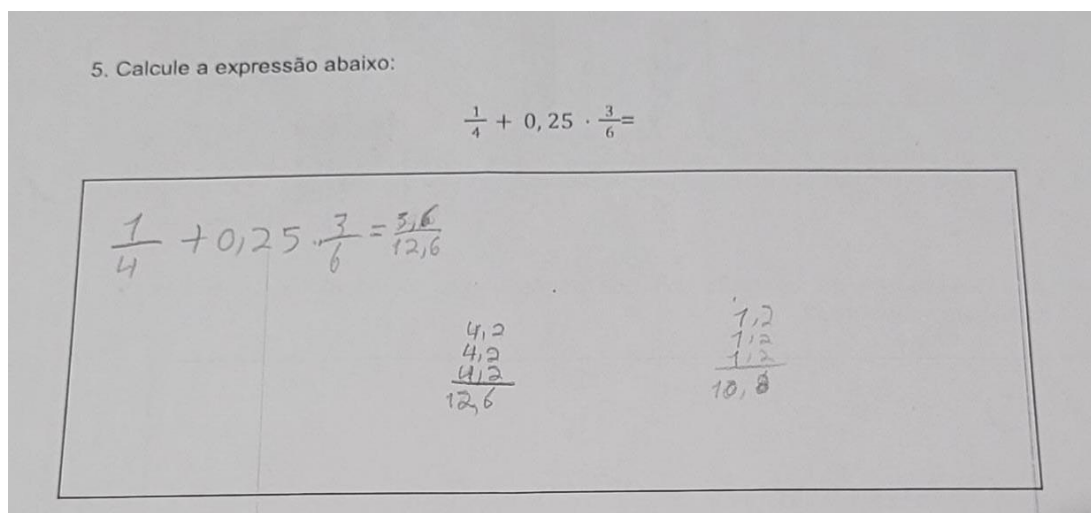 5. Calcule a expressão abaixo:
1/4 + 0,25 · 3/6=
1/4 + 0,25 · 3/6 = 3,6/12,6
4,2
4,2
4,2
12,6
1,2
1,2
1,2